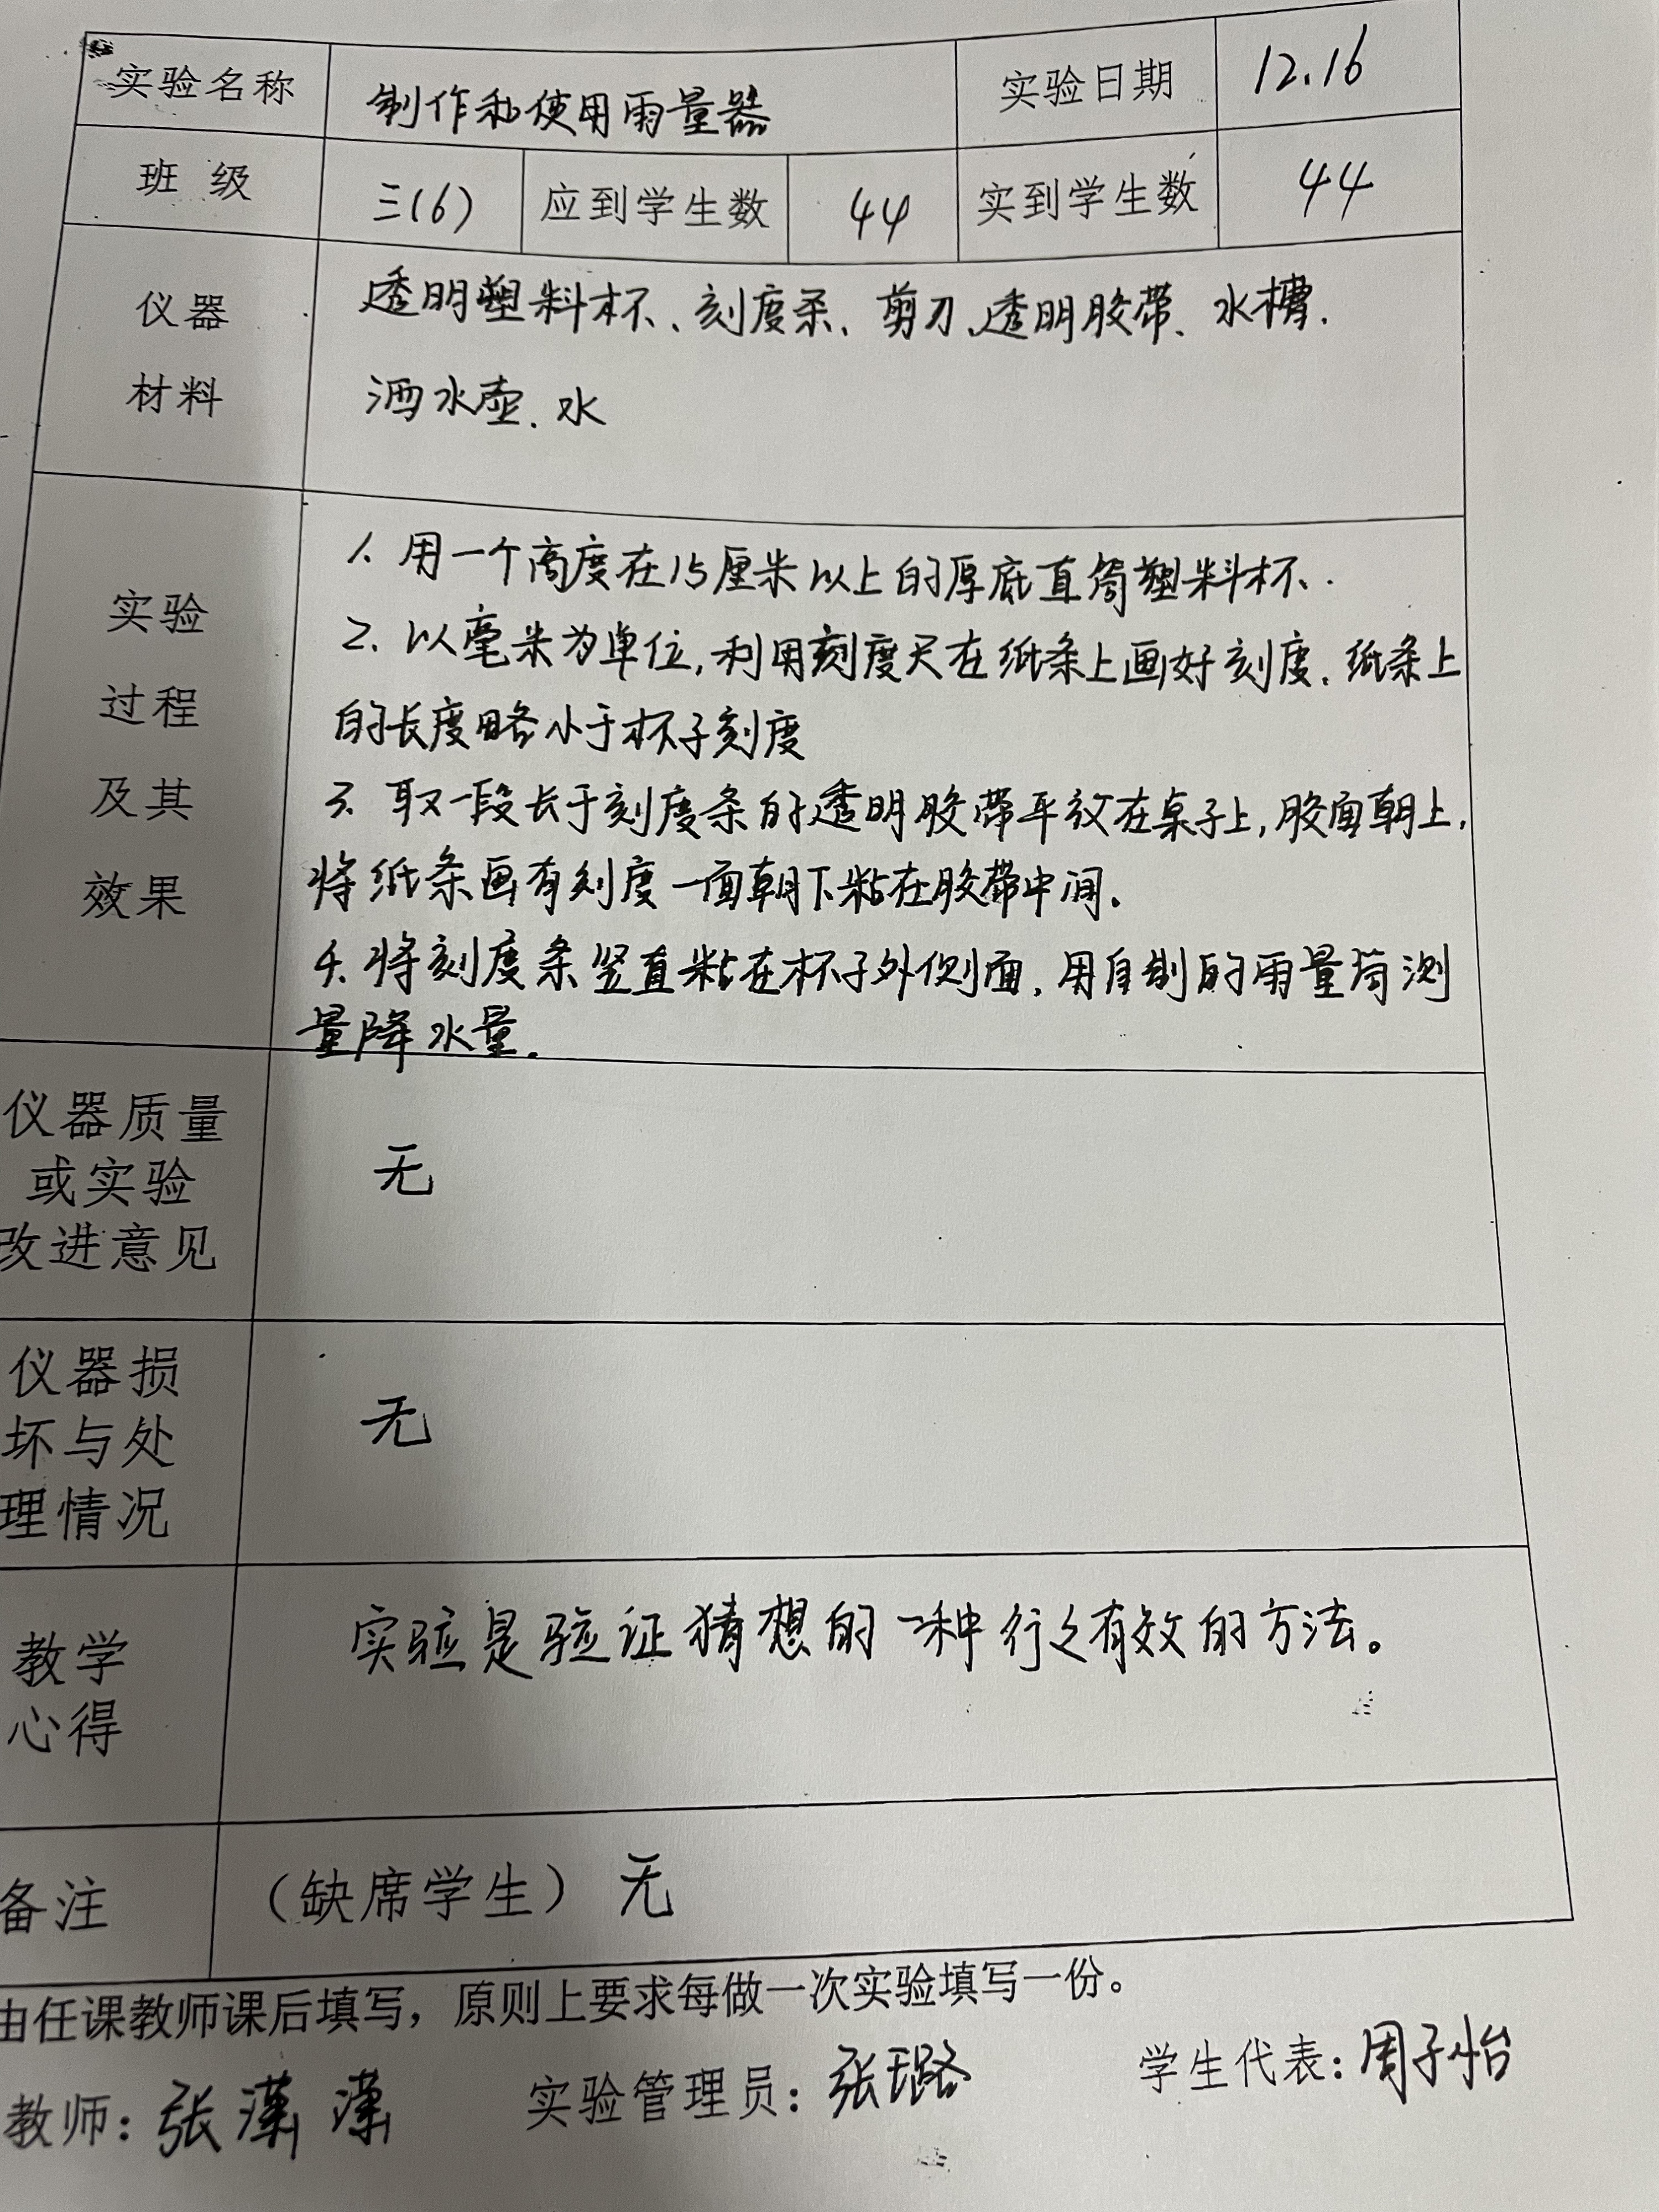 实验名称 制作和使用雨量器 实验日期 12.16
班级 三(6) 应到学生数 44 实到学生数 44
仪器 透明塑料杯、刻度条、剪刀、透明胶带、水槽.
材料 洒水壶、水
实验
过程
及其
效果
1. 用一个高度在15厘米以上的厚底直筒塑料杯.
2. 以毫米为单位,利用刻度尺在纸条上画好刻度.纸条上
的长度略小于杯子刻度
3. 取一段长于刻度条的透明胶带平放在桌子上,胶面朝上,
将纸条画有刻度一面朝下粘在胶带中间.
4. 将刻度条竖直粘在杯子外侧面,用自制的雨量筒测
量降水量.
仪器质量
或实验
改进意见
无
仪器损
坏与处
理情况
无
教学
心得
实验是验证猜想的一种行之有效的方法。
备注 (缺席学生) 无
由任课教师课后填写，原则上要求每做一次实验填写一份。
教师: 张 实验管理员: 张璐 学生代表: 周子怡